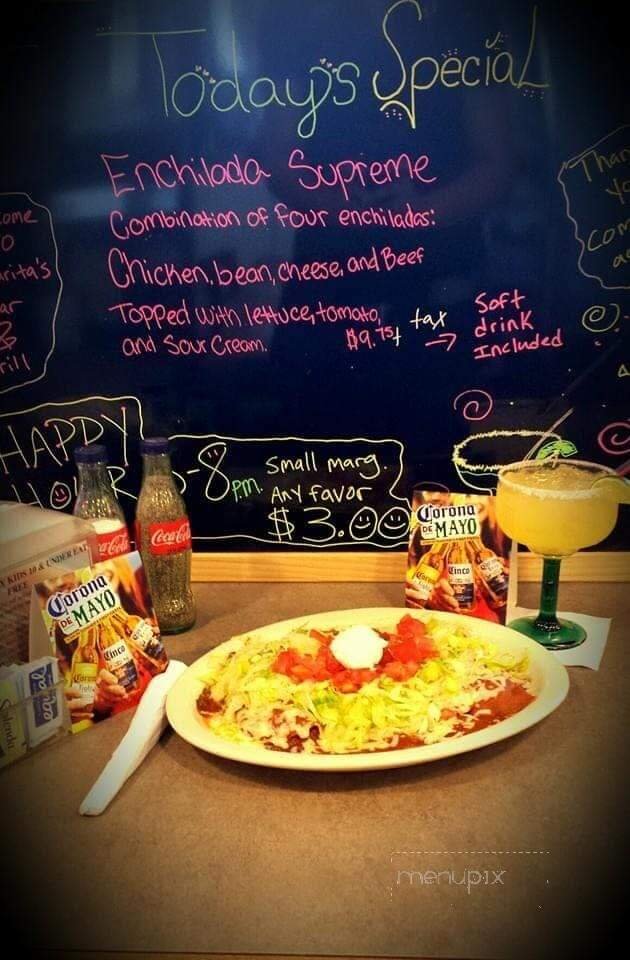 Today's Special
Enchilada Supreme
Combination of four enchiladas:
Chicken, bean, cheese, and Beef
Topped with lettuce, tomato,
and Sour Cream.
$9.75 + tax →
Soft
drink
Included
HAPPY
HOUR
-8 P.M.
Small marg.
Any favor
$3.00
Coca-Cola
Corona
DE MAYO
Cinco
Corona
DE MAYO
Cinco
KIDS 10 & UNDER EAT
FREE
Splenda
equal
menupix